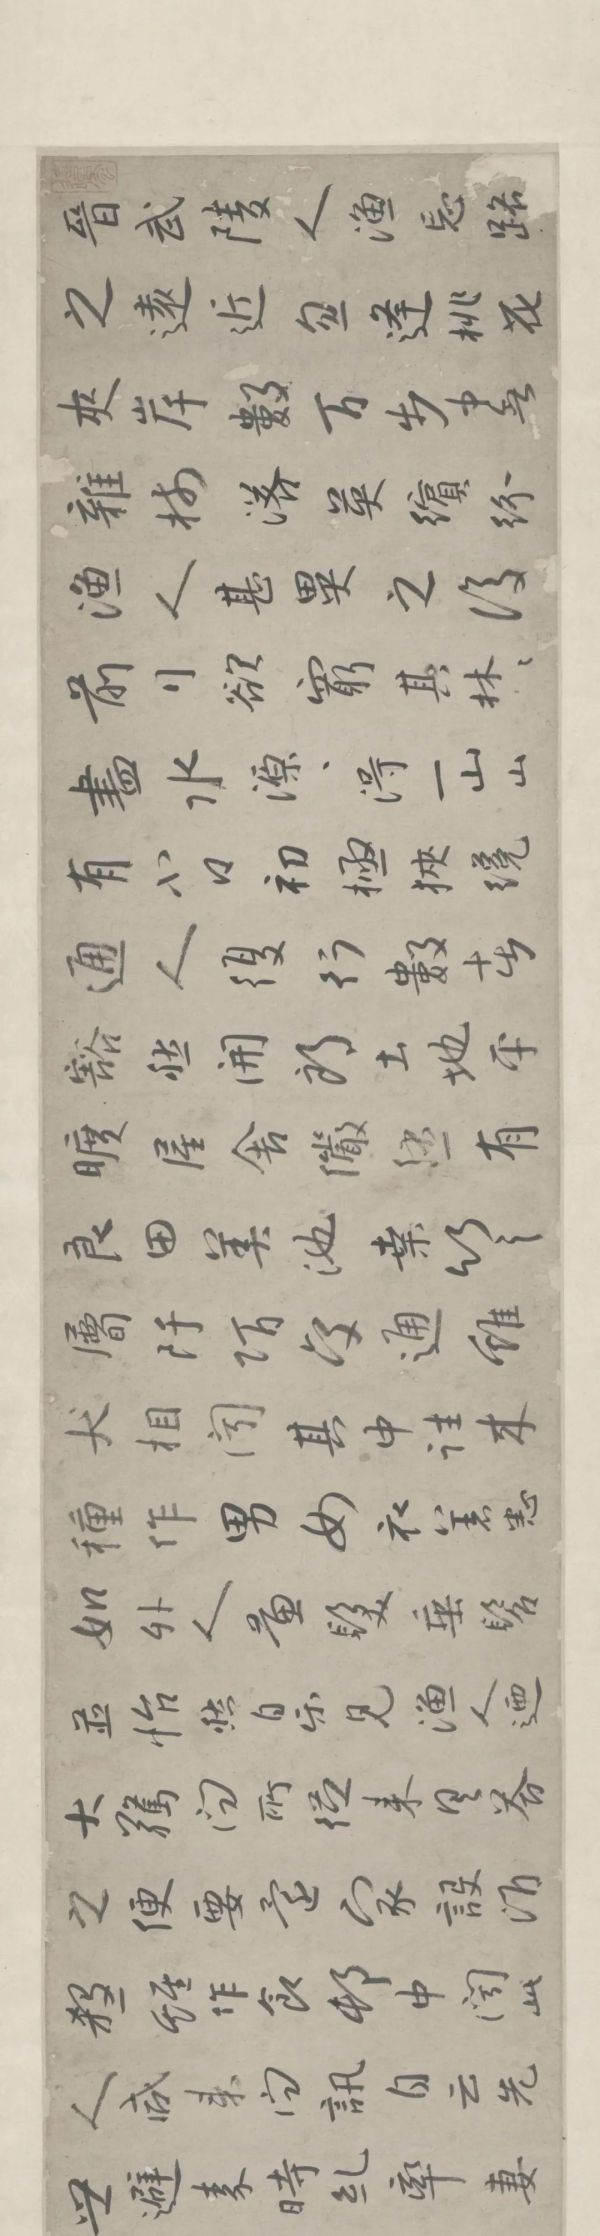 晉武陵人漁忘路
之遠近忽逢桃花
夾岸數百步中無
雜樹落英繽紛
漁人甚異之復
前行欲窮其林〻
盡水源〻得一山山
有小口初極狹纔
通人復行數十步
豁然開朗土地平
曠屋舍儼然有
良田美池桑竹之
屬阡陌交通雞
犬相聞其中往來
種作男女衣著悉
如外人黃髮垂髫
並怡然自樂見漁人迺
大驚問所從來具答
之便要還家設酒
殺雞作食邨中聞此
人咸來問訊自云先
世避秦時亂率妻